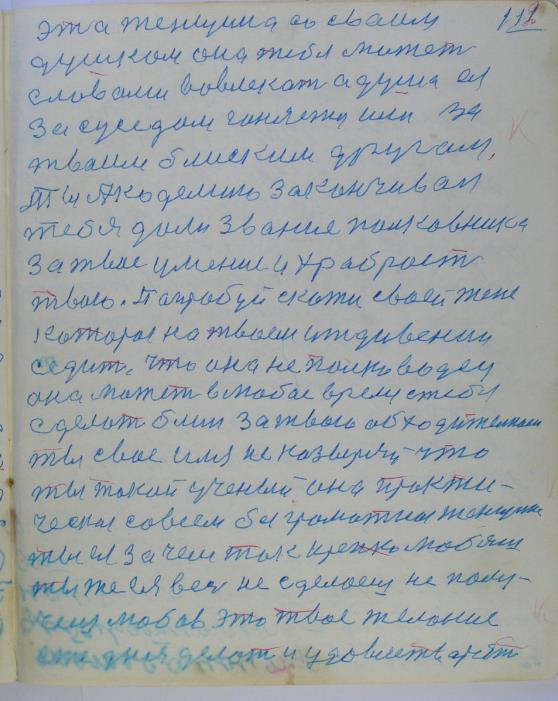 112
эта женщина со своим
душком она тебя может
словами вовлекат а душа ея
За суседом гоняежи или За
твоим блиским другам,
Ты Акодемию Закончивал
тебя дали Звание полковника
За твое умение и храброст
твою. Папробуй скажи своей жене
которая на твоем иждивении
седит, что она не полководец
она может в любое время с тебя
сделат блин За твою обходителност
ты свое имя не назвыряй что
ты такой ученый она практи-
чески совсем безграмотная женщина
ты ея Зачем так крепко любиш
ты же ея век не сделаеш не полу-
чиш любов это твое желание
ето дня делат и удовлетварят